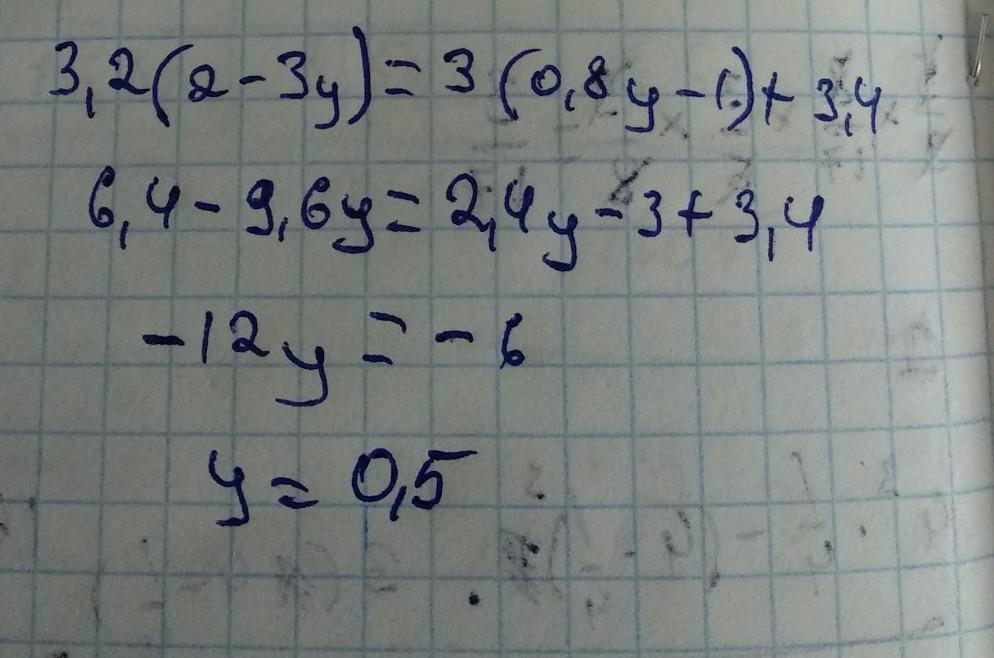 3,2(2-3y)=3(0,8y-1)+3,4
6,4-9,6y=2,4y-3+3,4
-12y=-6
y=0,5